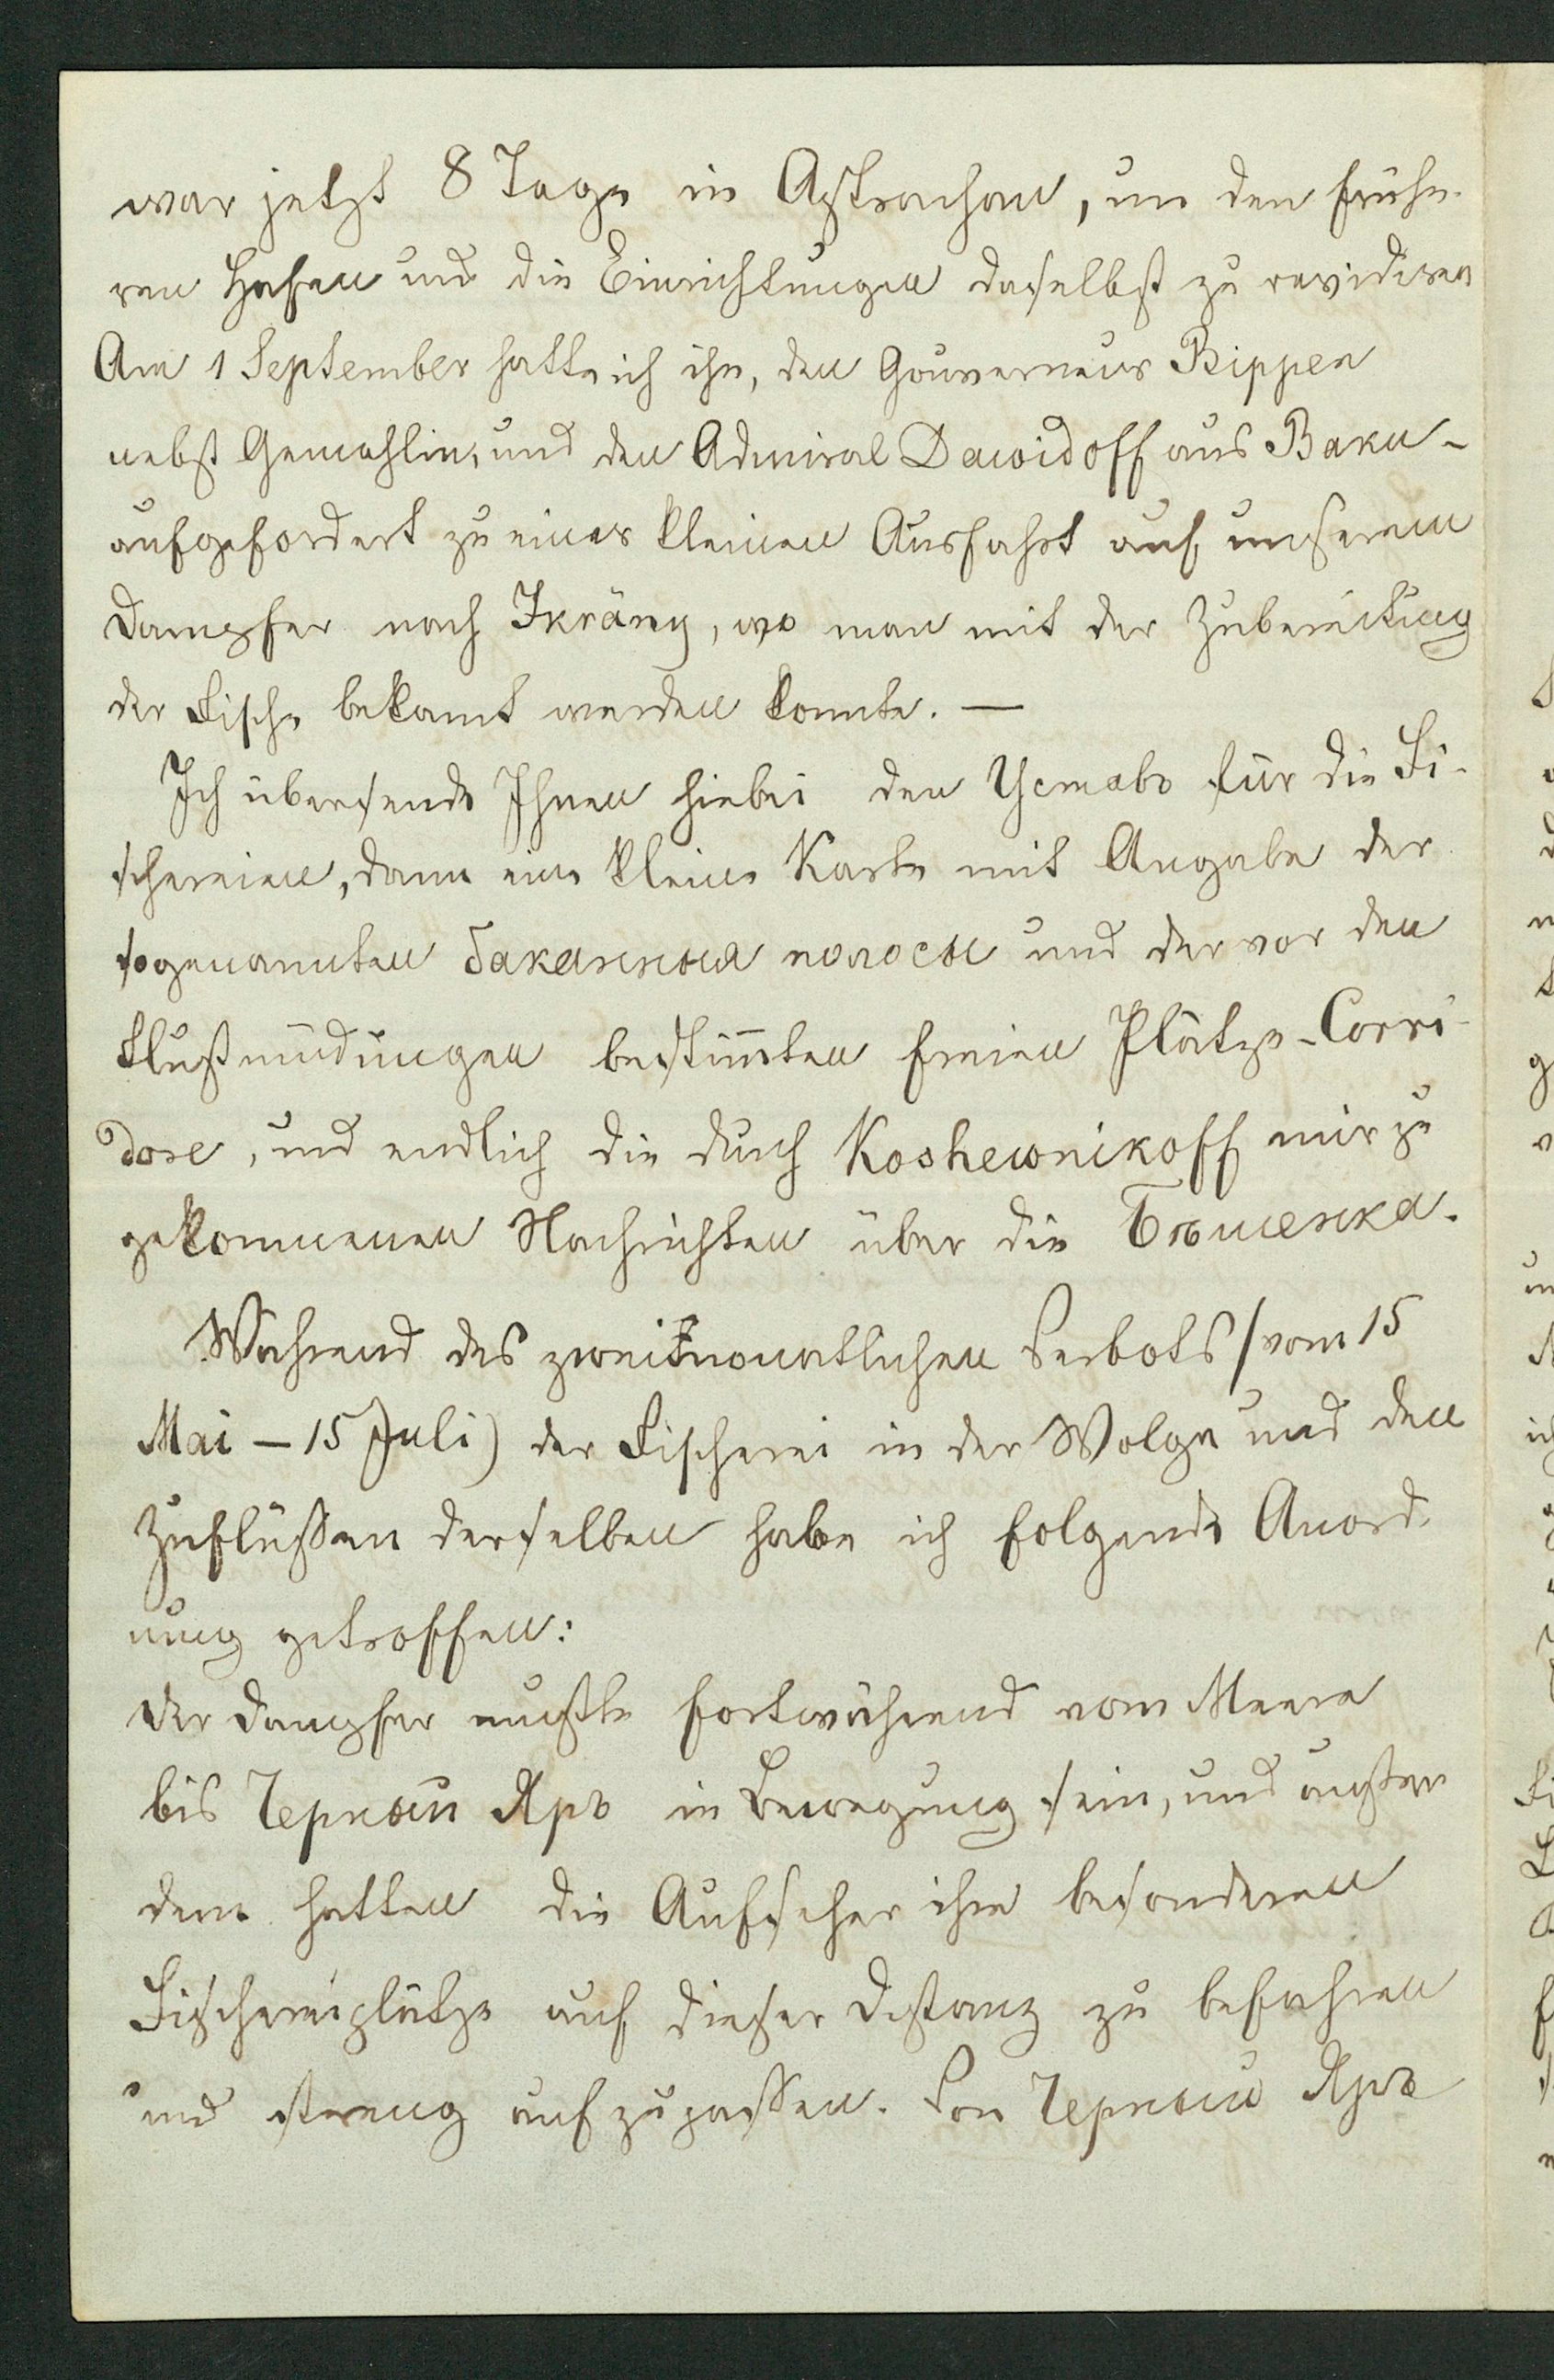 war jetzt 8 Tage in Astrachan, um den frühe-
ren Hafen und die Einrichtungen daselbst zu revidiren
Am 1 September hatte ich ihn, den Gouverneur Bippen
nebst Gemahlin, und den Admiral Dawidoff aus Baku-
aufgefordert zu einer kleinen Ausfahrt auf unserem
Dampfer nach Ikräny, wo man mit der Zubereitung
der Fische bekant werden konnte. —
Ich übersende Ihnen hiebei den Уставъ für die Fi-
schereien, dann eine kleine Karte mit Angabe der
sogenannten бакенныя полосы und der vor den
Flußmündungen bestim̅ten freien Plätze-Corri-
dore, und endlich die durch Koshewnikoff mir zu
gekommenen Nachrichten über die Бѣшенка.
Während des zweimonatlichen Verbots (vom 15
Mai – 15 Juli) der Fischerei in der Wolga und den
Zuflüßen derselben habe ich folgende Anord-
nung getroffen:
Der Dampfer mußte fortwährend vom Meere
bis Черный Яръ in Bewegung sein, und außer
dem hatten die Aufseher ihre besonderen
Fischereiplätze auf dieser Distanz zu befahren
und streng aufzupassen. Von Черный Яръ